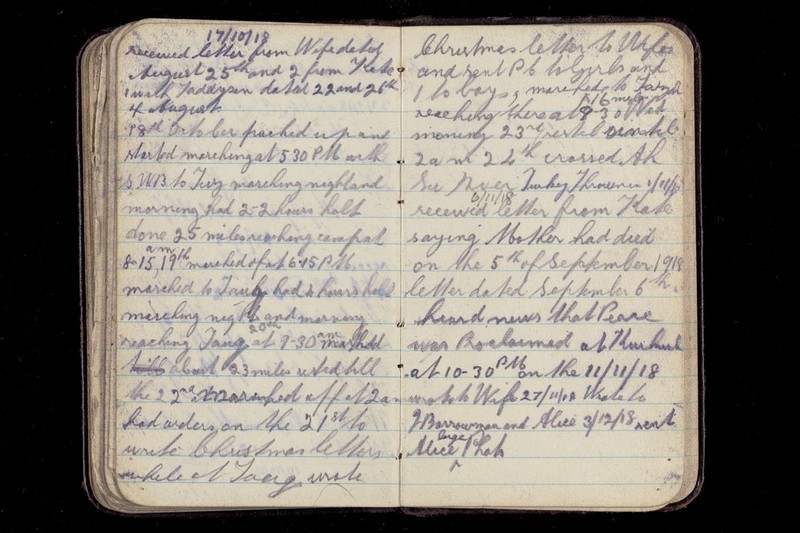 17/10/18
received letter from Wife dated
August 25th and 2 from Kate
1 with Taddysan dated 22 and 26th
4 August
18th October packed up and
started marching at 5 30 PM with
SWB to marching night and
morning had 2-2 hours halt
done 25 miles reaching camp at
8-15 am 19th marched of at 6-15 PM
marched to had 2 hours halt
marching night and morning
reaching Taug 20th at 9-30 am marched
about 23 miles rested till
the 22nd marched off at 2 am
had orders on the 21st to
write Christmas letters
while at Taug wrote
Christmas letter to Wife
and sent P6 to Girls and
1 to boys, marched to
reaching there at 9-30 16 miles
morning 23rd rested until
2 am 24th crossed Ah
River Turkey Thrown in 1/11/18
6/11/18
received letter from Kate
saying Mother had died
on the 5th of September 1918
letter dated September 6th.
heard news that Peace
was Proclaimed at
at 10-30 PM on the 11/11/18
wrote to Wife 27/11/18 Wrote to
J Borrowman and Alice 3/12/18 sent
Alice large Phot